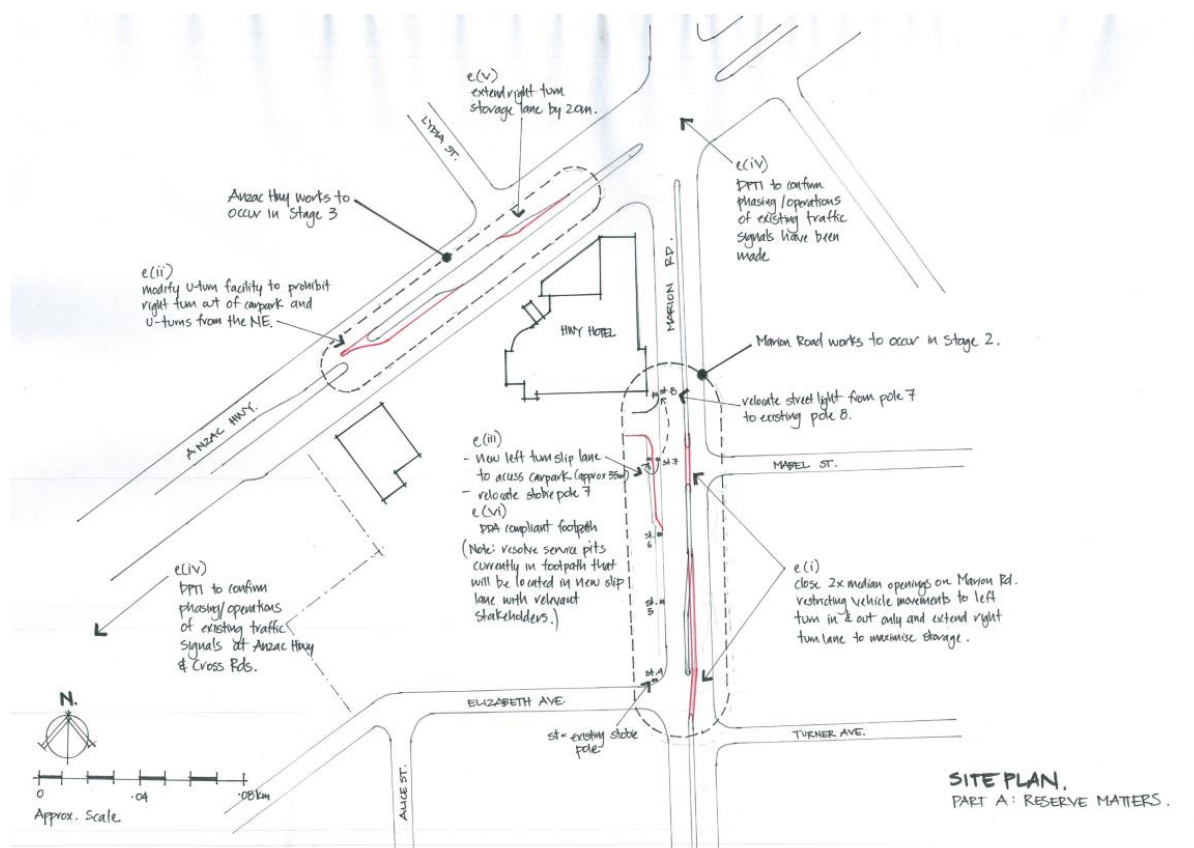 e(v)
extend right turn
storage lane by 20m.
LYDIA ST.
Anzac Hwy works to
occur in Stage 3
e(iv)
DPTI to confirm
phasing/operations
of existing traffic
signals have been
made
e(ii)
modify U-turn facility to prohibit
right turn out of carpark and
U-turns from the NE.
MARION RD.
HWY HOTEL
Marion Road works to occur in Stage 2.
ANZAC HWY.
st. 8
relocate street light from pole 7
to existing pole 8.
e(iii)
- new left turn slip lane
to access carpark (approx 35m)
- relocate stobie pole 7
e(vi)
DDA compliant footpath
(Note: resolve service pits
currently in footpath that
will be located in new slip
lane with relevant
stakeholders.)
st. 7
MABEL ST.
st.
6
st.
5
e(i)
close 2x median openings on Marion Rd.
restricting vehicle movements to left
turn in & out only and extend right
turn lane to maximise storage.
e(iv)
DPTI to confirm
phasing/operations
of existing traffic
signals at Anzac Hwy
& Cross Rds.
st. 4
ELIZABETH AVE.
st = existing stobie
pole
TURNER AVE.
ALICE ST.
N.
0 .04 .08km
Approx. Scale
SITE PLAN.
PART A: RESERVE MATTERS.